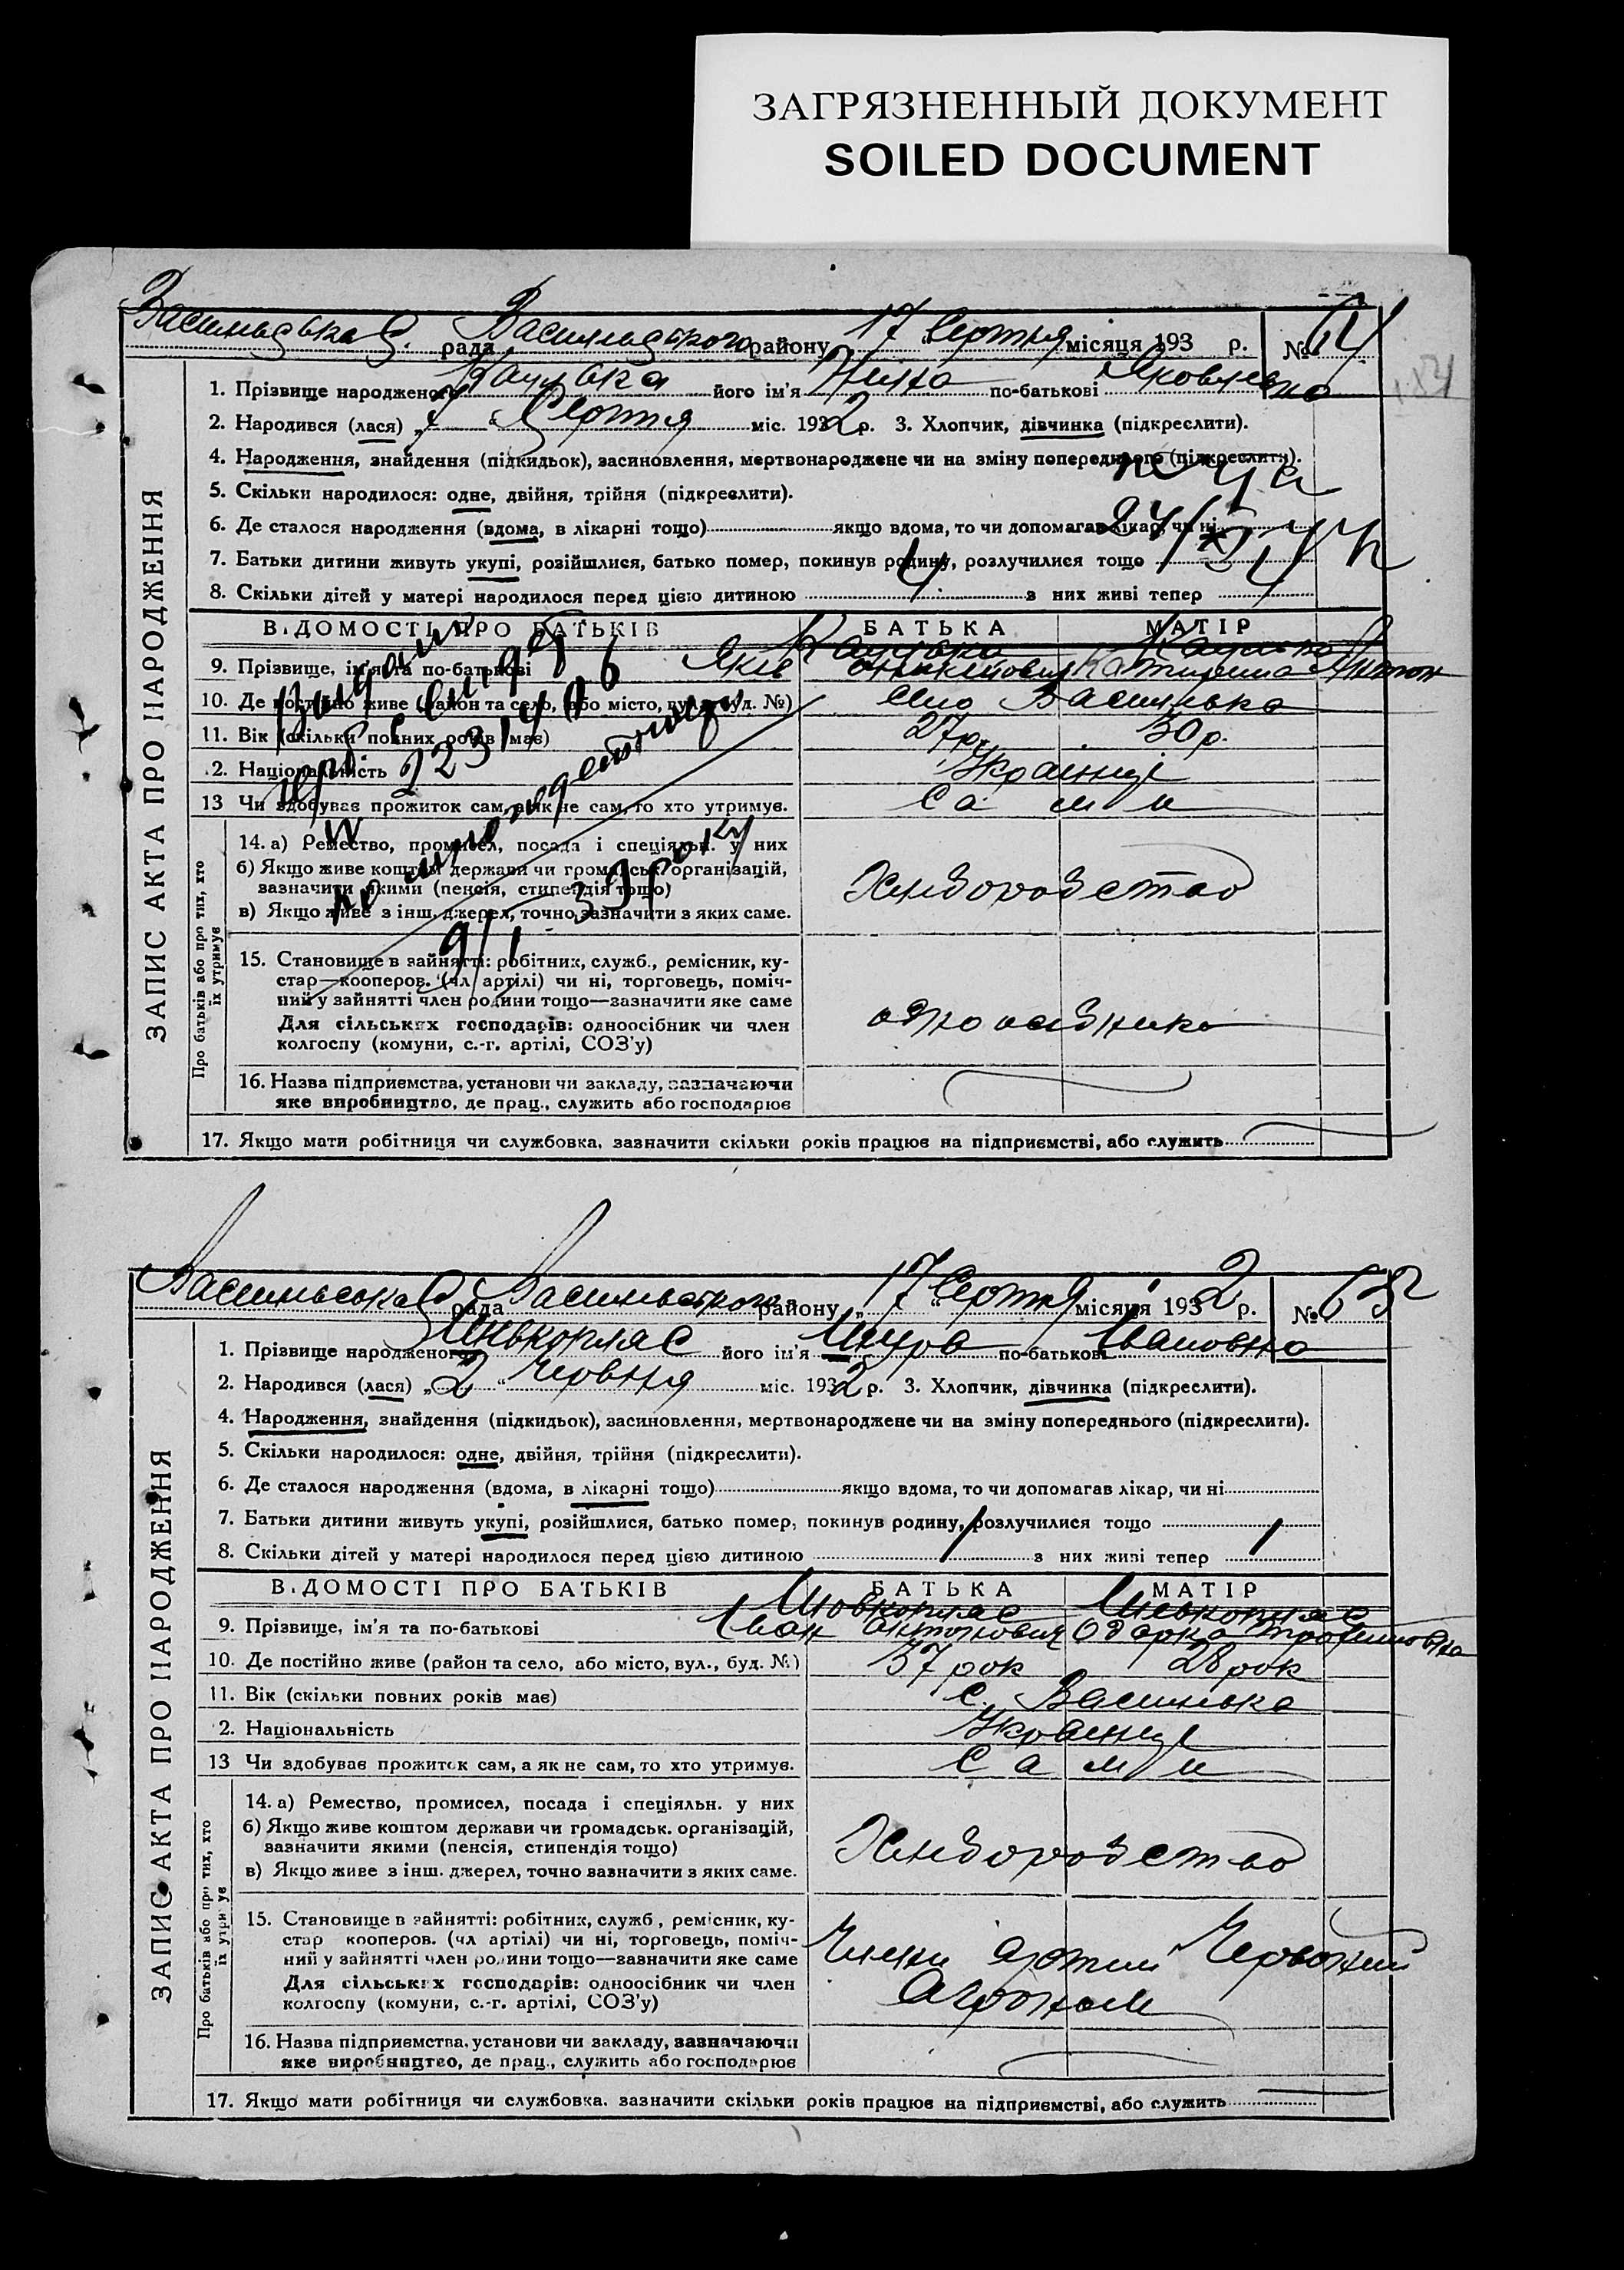 ЗАГРЯЗНЕННЫЙ ДОКУМЕНТ
SOILED DOCUMENT
рада району 17 Серпня місяця 193 р. № 64
ЗАПИС АКТА ПРО НАРОДЖЕННЯ
1. Прізвище народженого його ім'я Ніна по-батькові Яковлевна
2. Народився (лася) „ “ Серпня міс. 1932 р. 3. Хлопчик, дівчинка (підкреслити).
4. Народження, знайдення (підкидьок), засиновлення, мертвонароджене чи на зміну попереднього (підкреслити).
5. Скільки народилося: одне, двійня, трійня (підкреслити).
6. Де сталося народження (вдома, в лікарні тощо) якщо вдома, то чи допомагав лікар, чи ні
7. Батьки дитини живуть укупі, розійшлися, батько помер, покинув родину, розлучилися тощо
8. Скільки дітей у матері народилося перед цією дитиною з них живі тепер
ВІДОМОСТІ ПРО БАТЬКІВ БАТЬКА МАТІР
9. Прізвище, ім'я та по-батькові Яків
10. Де постійно живе (район та село, або місто, вул., буд. №)
11. Вік (скільки повних років має) 27 р. 30 р.
2. Національність Українці
13 Чи здобуває прожиток сам, а як не сам, то хто утримує. Сами
Про батьків або про тих, хто їх утримує
14. а) Ремество, промисел, посада і спеціяльн. у них
б) Якщо живе коштом держави чи громадськ. організацій,
зазначити якими (пенсія, стипендія тощо)
в) Якщо живе з інш. джерел, точно зазначити з яких саме.
Хліборобство
15. Становище в зайнятті: робітник, служб., ремісник, ку-
стар—кооперов. (чл артілі) чи ні, торговець, поміч-
ний у зайнятті член родини тощо—зазначити яке саме
Для сільських господарів: одноосібник чи член
колгоспу (комуни, с.-г. артілі, СОЗ'у)
одноосібники
16. Назва підприємства, установи чи закладу, зазначаючи
яке виробництво, де прац., служить або господарює
17. Якщо мати робітниця чи службовка, зазначити скільки років працює на підприємстві, або служить
рада району „17“ Серпня місяця 1932 р. № 65
ЗАПИС АКТА ПРО НАРОДЖЕННЯ
1. Прізвище народженого його ім'я Шура по-батькові Івановна
2. Народився (лася) „2“ Червня міс. 1932 р. 3. Хлопчик, дівчинка (підкреслити).
4. Народження, знайдення (підкидьок), засиновлення, мертвонароджене чи на зміну попереднього (підкреслити).
5. Скільки народилося: одне, двійня, трійня (підкреслити).
6. Де сталося народження (вдома, в лікарні тощо) якщо вдома, то чи допомагав лікар, чи ні
7. Батьки дитини живуть укупі, розійшлися, батько помер, покинув родину, розлучилися тощо
8. Скільки дітей у матері народилося перед цією дитиною 1 з них живі тепер 1
ВІДОМОСТІ ПРО БАТЬКІВ БАТЬКА МАТІР
9. Прізвище, ім'я та по-батькові Іван Антонович Одарка Трофимовна
10. Де постійно живе (район та село, або місто, вул., буд. №) 37 рок 28 рок
11. Вік (скільки повних років має) с.
2. Національність Українці
13 Чи здобуває прожиток сам, а як не сам, то хто утримує. Сами
Про батьків або про тих, хто їх утримує
14. а) Ремество, промисел, посада і спеціяльн. у них
б) Якщо живе коштом держави чи громадськ. організацій,
зазначити якими (пенсія, стипендія тощо)
в) Якщо живе з інш. джерел, точно зазначити з яких саме.
Хліборобство
15. Становище в зайнятті: робітник, служб., ремісник, ку-
стар кооперов. (чл артілі) чи ні, торговець, поміч-
ний у зайнятті член родини тощо—зазначити яке саме
Для сільських господарів: одноосібник чи член
колгоспу (комуни, с.-г. артілі, СОЗ'у)
Члени артілі Червоний
Агроном
16. Назва підприємства, установи чи закладу, зазначаючи
яке виробництво, де прац., служить або господарює
17. Якщо мати робітниця чи службовка, зазначити скільки років працює на підприємстві, або служить